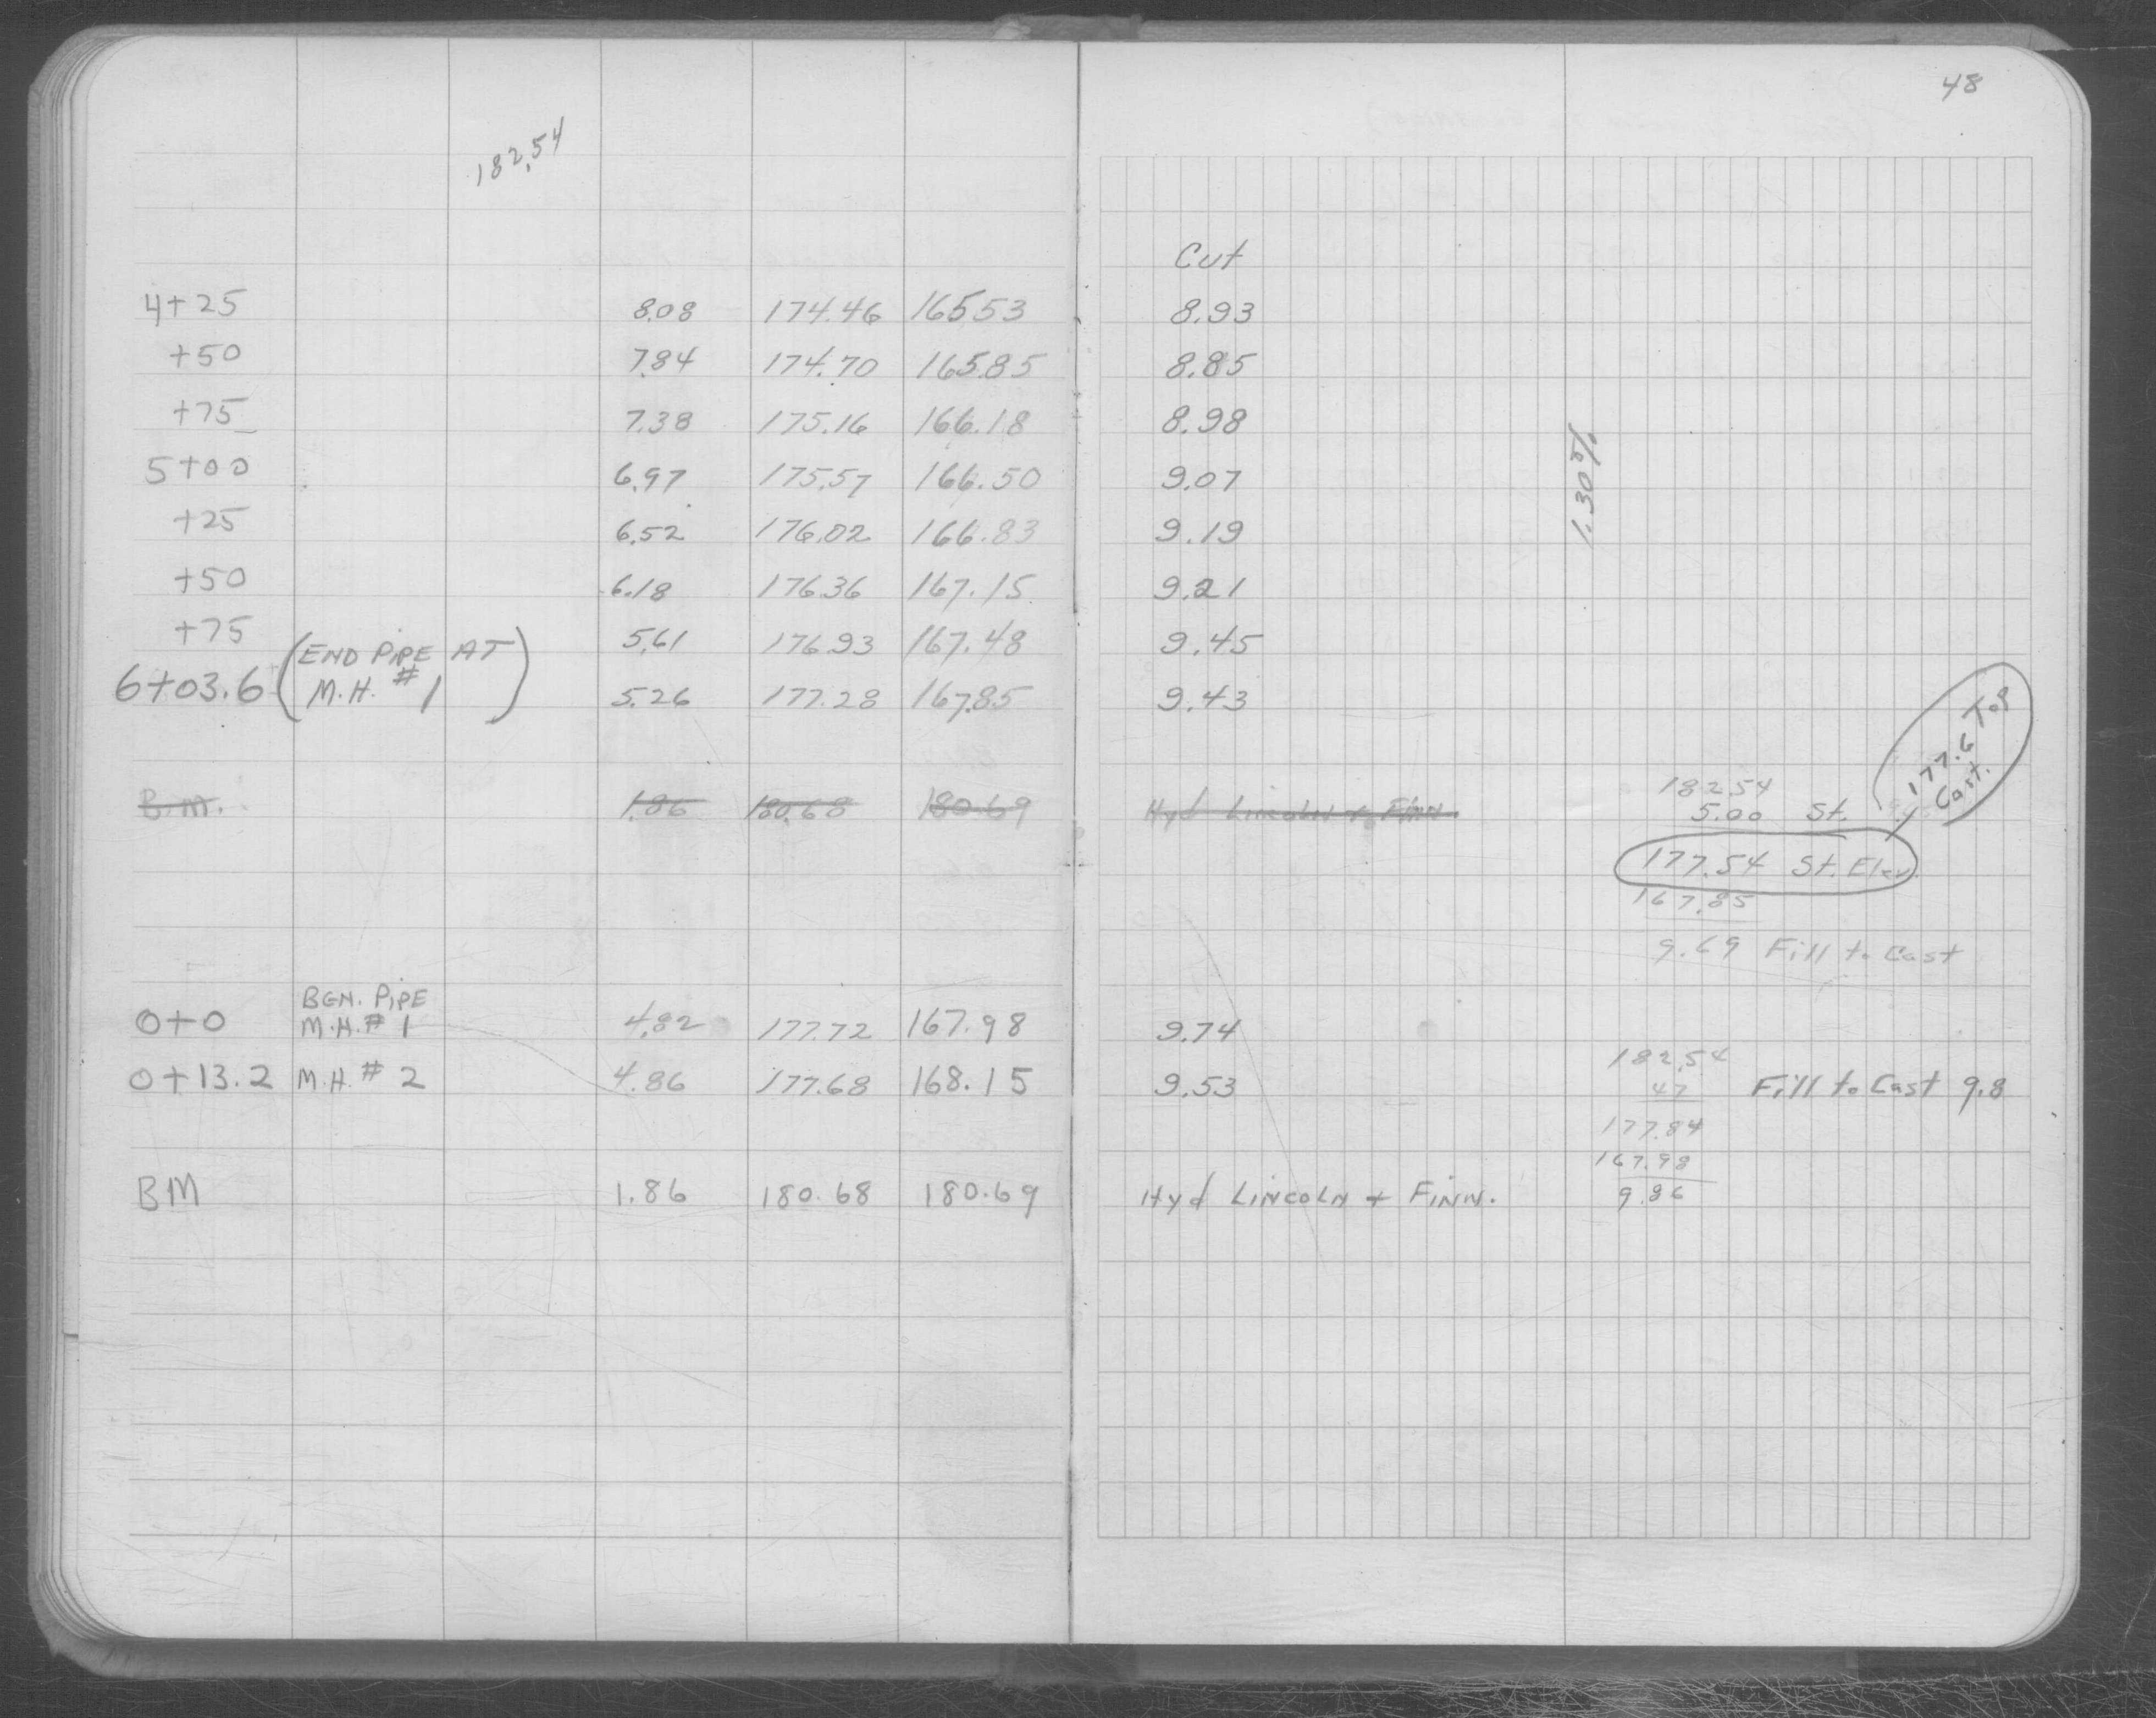 48
182.54
Cut
4+25 8.08 174.46 165.53 8.93
+50 7.84 174.70 165.85 8.85
+75 7.38 175.16 166.18 8.98
5+00 6.97 175.57 166.50 9.07
+25 6.52 176.02 166.83 9.19
+50 6.18 176.36 167.15 9.21
+75 5.61 176.93 167.48 9.45
1.30%
6+03.6 (END PIPE AT
M.H. #1) 5.26 177.28 167.85 9.43
B.M. 1.86 180.68 180.69 Hyd Lincoln + Finn.
182.54
5.00 St.
177.6 Top
Cast.
177.54 St. Elev.
167.85
9.69 Fill to Cast
BGN. PIPE
0+0 M.H. #1 4.82 177.72 167.98 9.74
0+13.2 M.H. #2 4.86 177.68 168.15 9.53
182.54
47 Fill to Cast 9.8
177.84
167.98
9.86
BM 1.86 180.68 180.69 Hyd Lincoln + Finn.